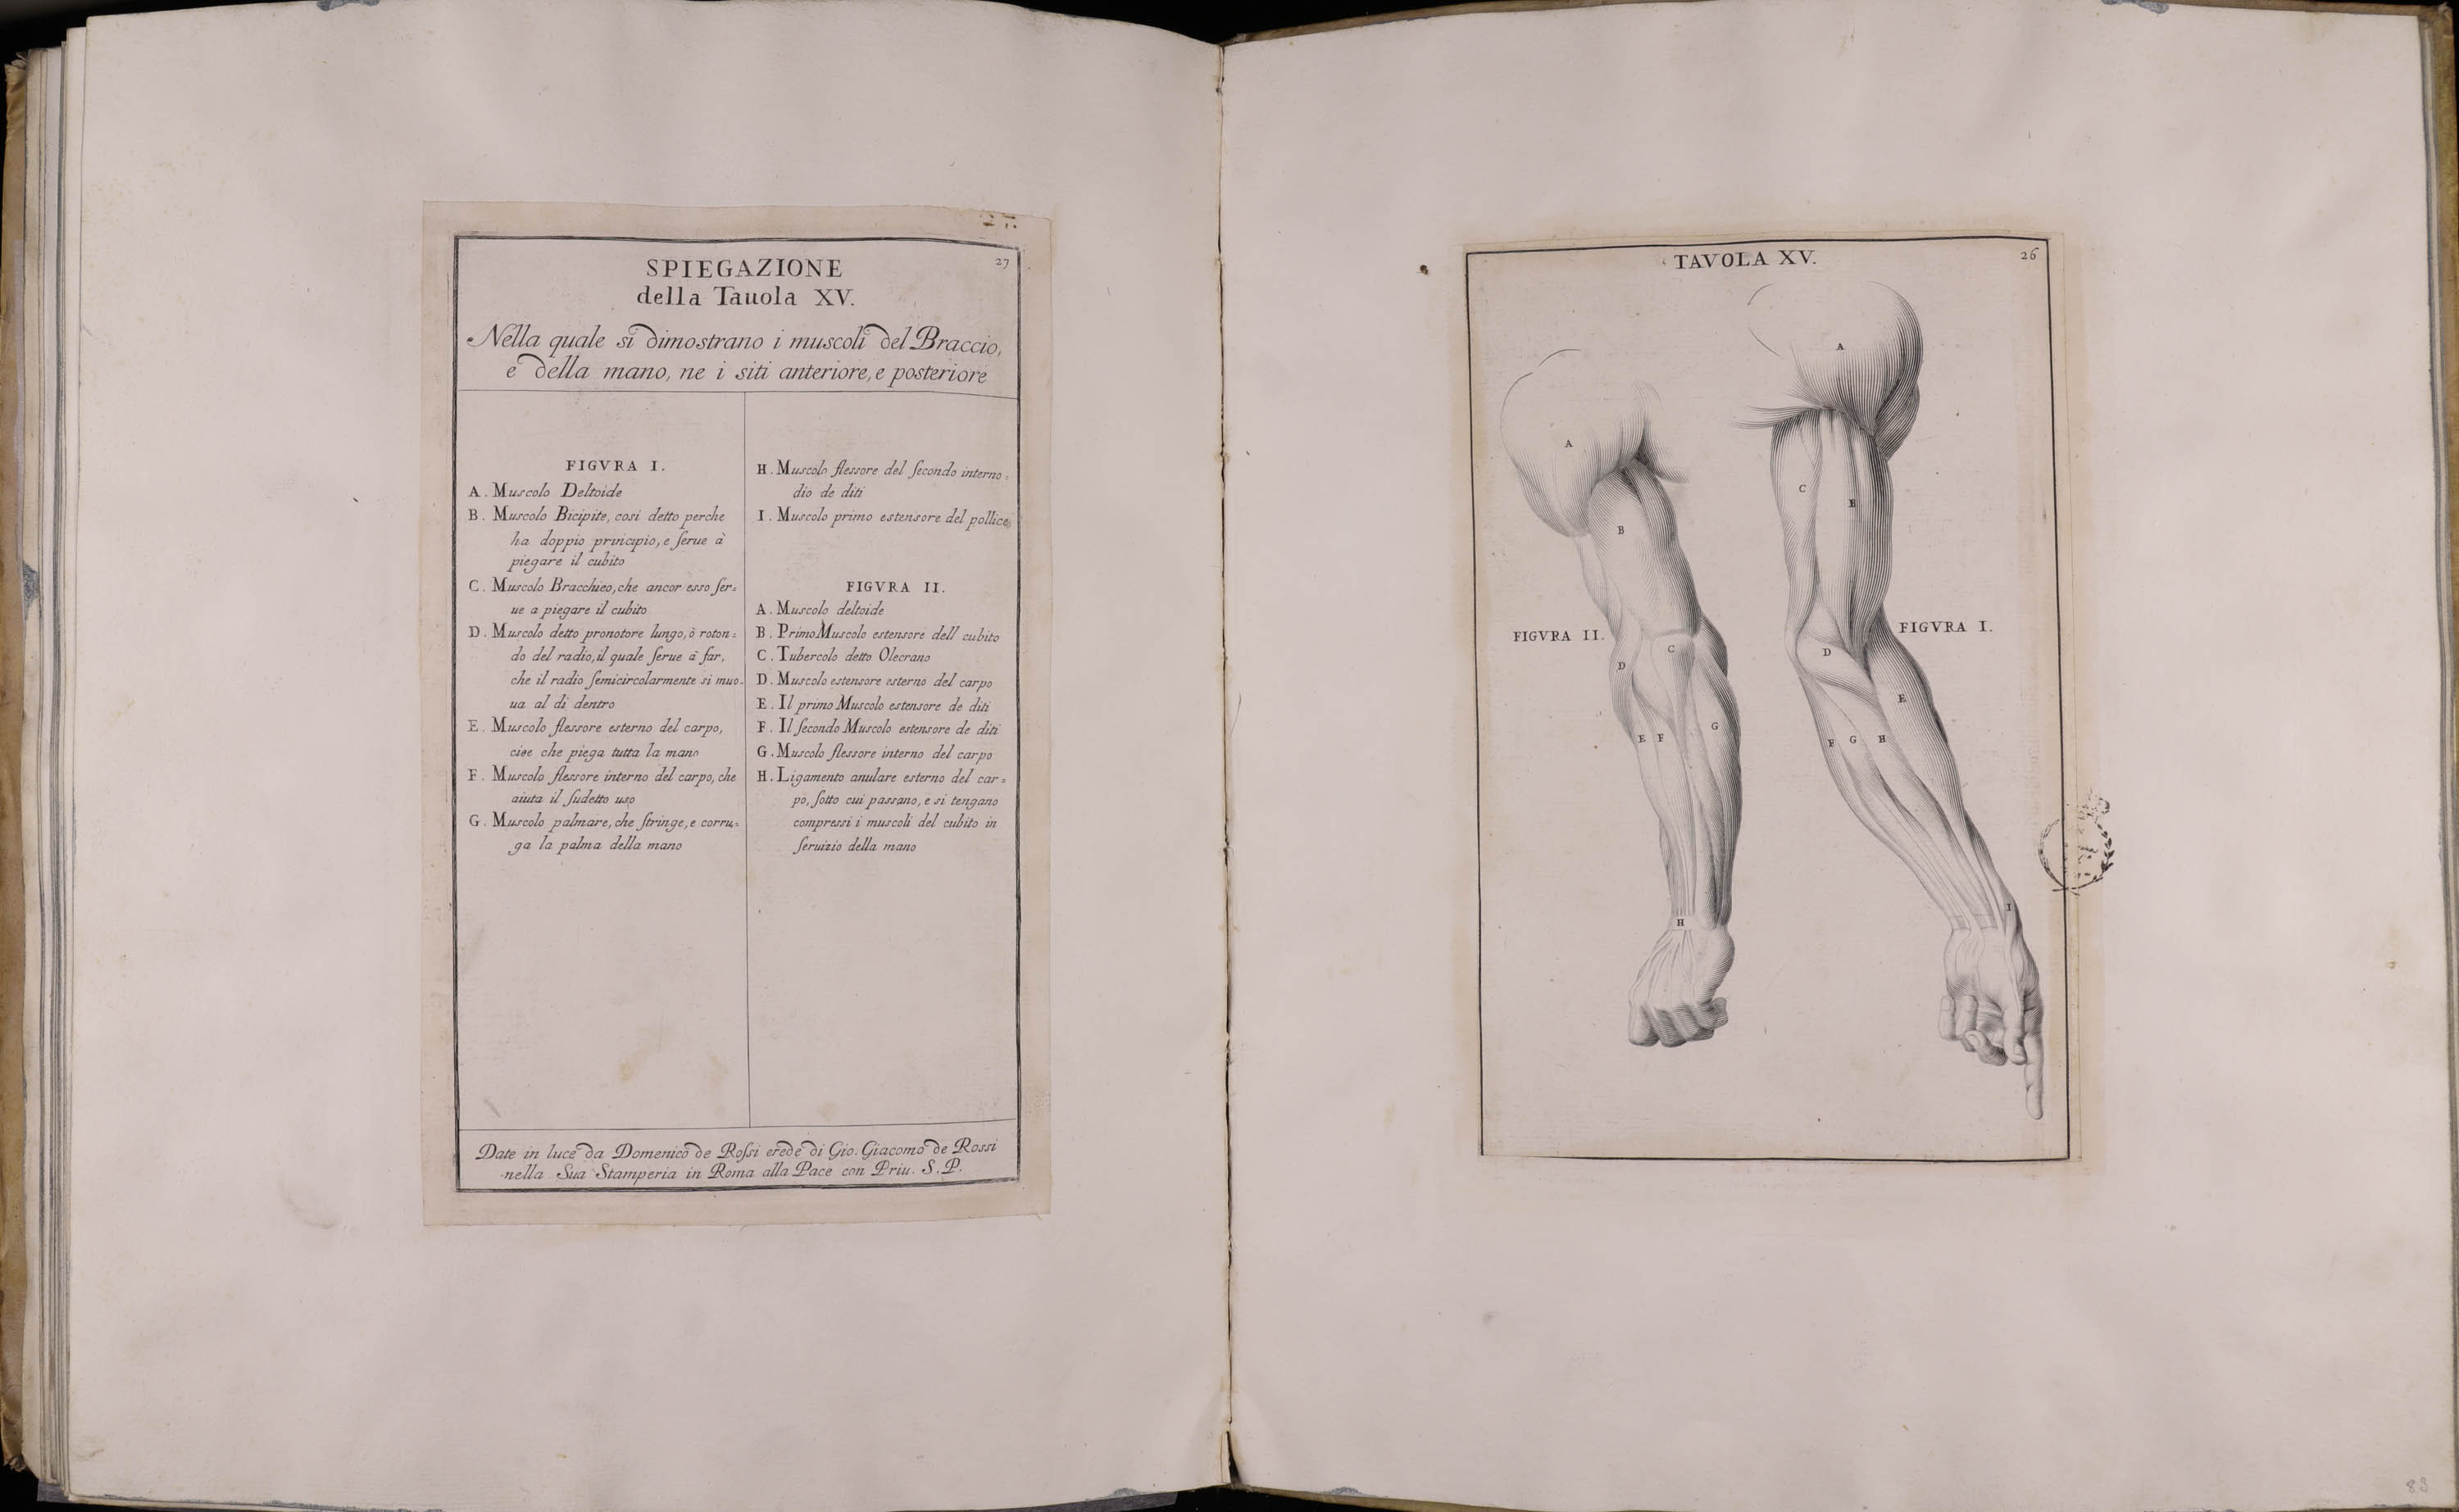 27.
27
SPIEGAZIONE
della Tauola XV.
Nella quale si dimostrano i muscoli del Braccio,
e della mano, ne i siti anteriore, e posteriore
FIGVRA I.
A. Muscolo Deltoide
B. Muscolo Bicipite, cosi detto perche
ha doppio principio, e ſerue à
piegare il cubito
C. Muscolo Bracchieo, che ancor esso ſer=
ue a piegare il cubito
D. Muscolo detto pronotore lungo, ò roton=
do del radio, il quale ſerue à far,
che il radio ſemicircolarmente si muo-
ua al di dentro
E. Muscolo flessore esterno del carpo,
cioe che piega tutta la mano
F. Muscolo flessore interno del carpo, che
aiuta il ſudetto uso
G. Muscolo palmare, che ſtringe, e corru=
ga la palma della mano
H. Muscolo flessore del ſecondo interno=
dio de diti
I. Muscolo primo estensore del pollice
FIGVRA II.
A. Muscolo deltoide
B. Primo Muscolo estensore dell cubito
C. Tubercolo detto Olecrano
D. Muscolo estensore esterno del carpo
E. Il primo Muscolo estensore de diti
F. Il ſecondo Muscolo estensore de diti
G. Muscolo flessore interno del carpo
H. Ligamento anulare esterno del car=
po, ſotto cui passano, e si tengano
compressi i muscoli del cubito in
ſeruizio della mano
Date in luce da Domenico de Roſsi erede di Gio. Giacomo de Rossi
nella Sua Stamperia in Roma alla Pace con Priu. S. P.
TAVOLA XV.
26
A
A
C
B
B
FIGVRA II.
FIGVRA I.
C
D
D
E
G
E
F
F
G
H
I
H
83